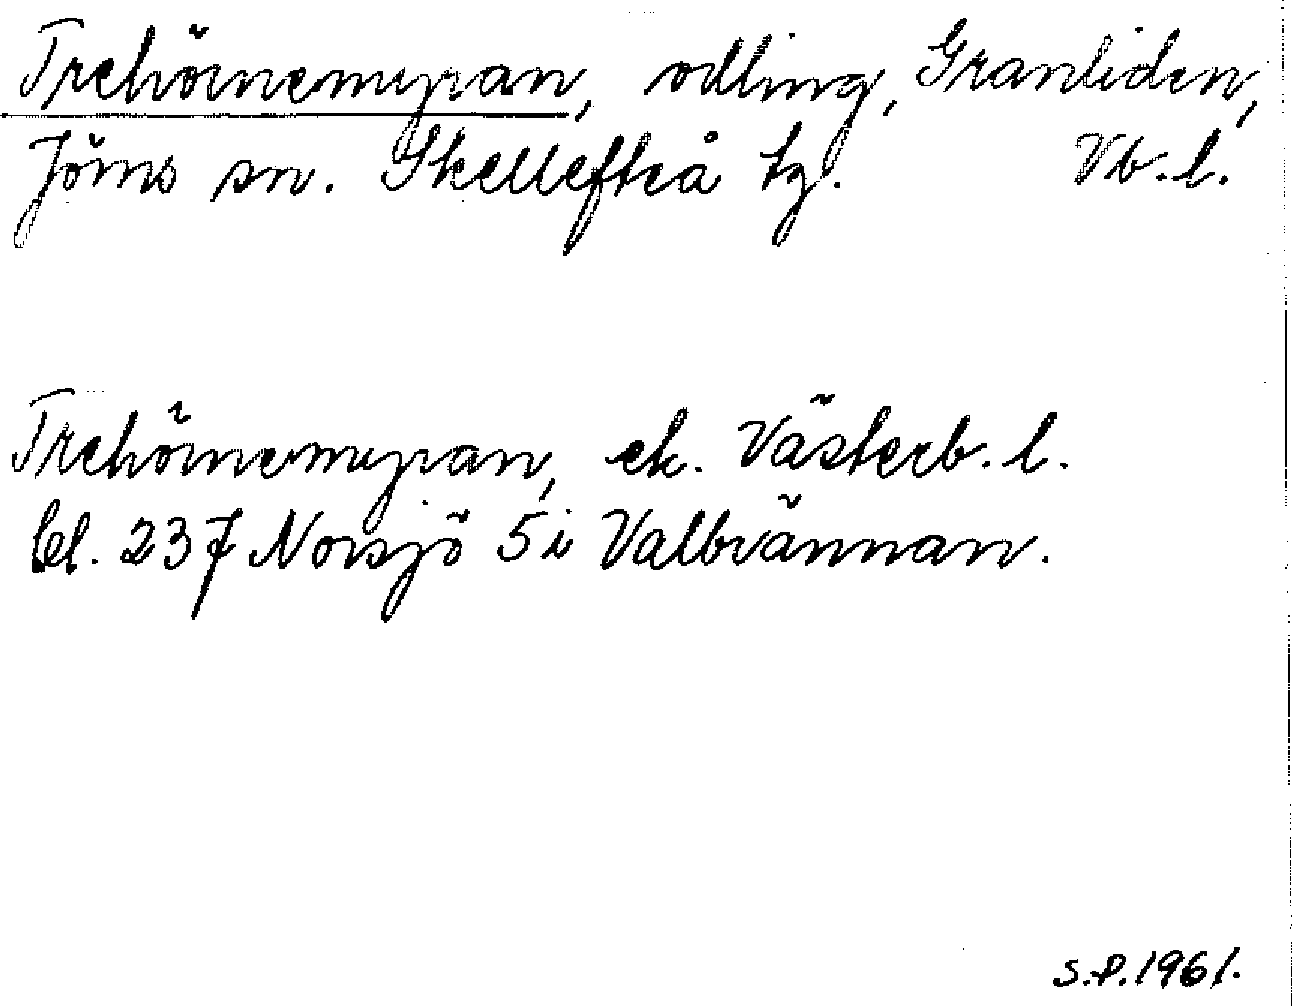 Trehörnemyran, odling, Granliden,
Jörns sn. Skellefteå tg. Vb.l.
Trehörnemyran, ek. Västerb.l.
bl. 237 Norsjö 5i Valbrännan.
S.P. 1961.